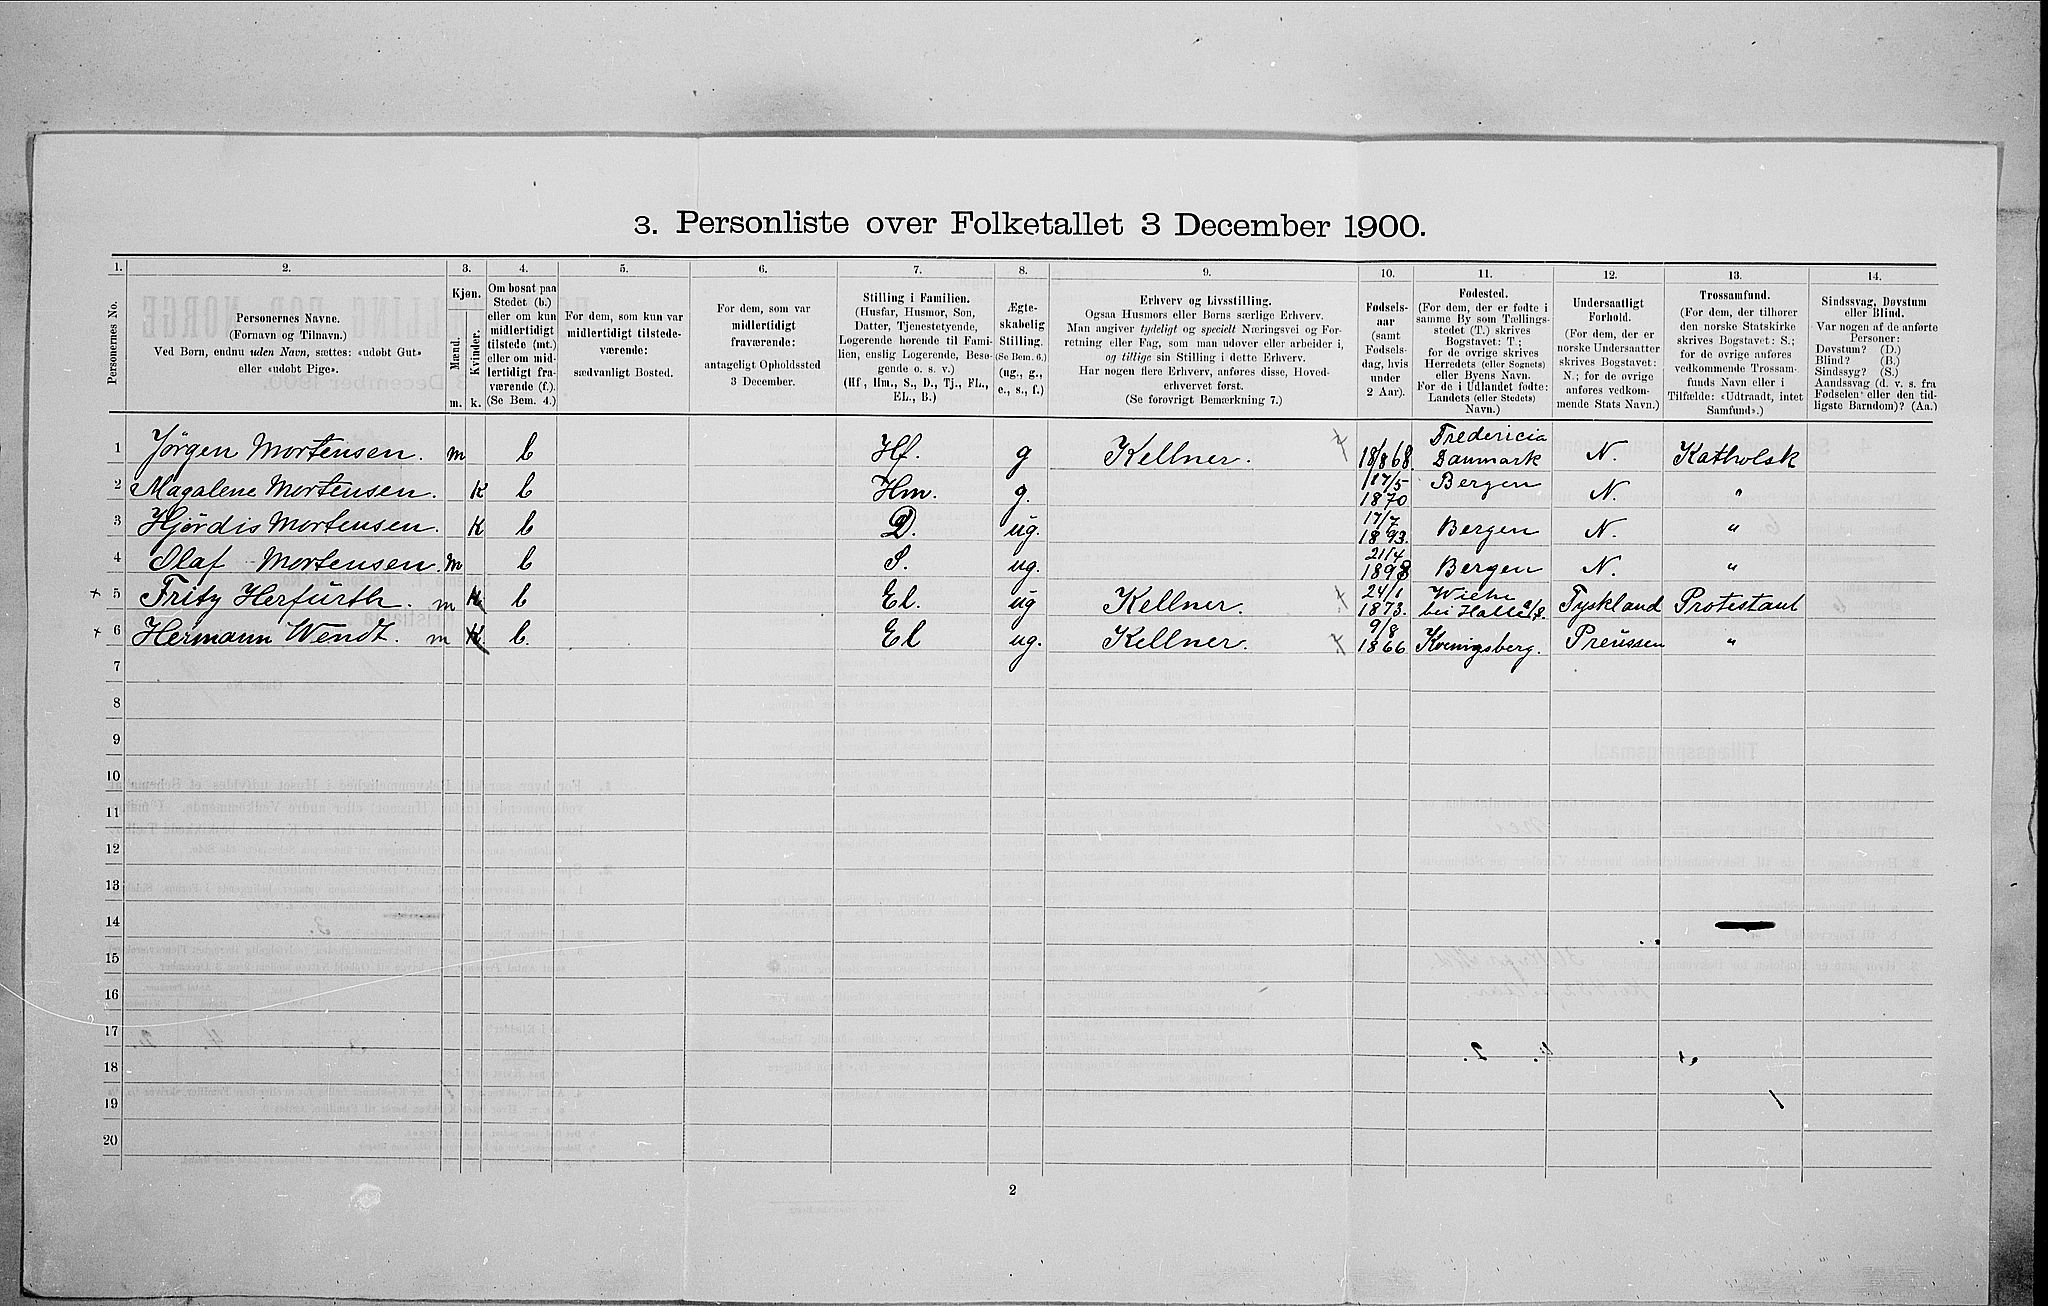 3. Personliste over Folketallet 3 December 1900.
1. 2. 3. 4. 5. 6. 7. 8. 9. 10. 11. 12. 13. 14.
Personernes No.
Personernes Navne.
(Fornavn og Tilnavn.)
Ved Børn, endnu uden Navn, sættes: «udøbt Gut»
eller «udøbt Pige».
Kjøn.
Mænd.
Kvinder.
m. k.
Om bosat paa
Stedet (b.)
eller om kun
midlertidigt
tilstede (mt.)
eller om mid-
lertidigt fra-
værende (f.).
(Se Bem. 4.)
For dem, som kun var
midlertidigt tilstede-
værende:
sædvanligt Bosted.
For dem, som var
midlertidigt
fraværende:
antageligt Opholdssted
3 December.
Stilling i Familien.
(Husfar, Husmor, Søn,
Datter, Tjenestetyende,
Logerende hørende til Fami-
lien, enslig Logerende, Besø-
gende o. s. v.)
(Hf, Hm., S., D., Tj., FL.,
EL., B.)
Ægte-
skabelig
Stilling.
(Se Bem. 6.)
(ug., g.,
e., s., f.)
Erhverv og Livsstilling.
Ogsaa Husmors eller Børns særlige Erhverv.
Man angiver tydeligt og specielt Næringsvei og For-
retning eller Fag, som man udøver eller arbeider i,
og tillige sin Stilling i dette Erhverv.
Har nogen flere Erhverv, anføres disse, Hoved-
erhvervet først.
(Se forøvrigt Bemærkning 7.)
Fødsels-
aar
(samt
Fødsels-
dag, hvis
under
2 Aar).
Fødested.
(For dem, der er fødte i
samme By som Tællings-
stedet (T.) skrives
Bogstavet: T.;
for de øvrige skrives
Herredets (eller Sognets)
eller Byens Navn.
For de i Udlandet fødte:
Landets (eller Stedets)
Navn.)
Undersaatligt
Forhold.
(For dem, der er
norske Undersaatter
skrives Bogstavet:
N.; for de øvrige
anføres vedkom-
mende Stats Navn.)
Trossamfund.
(For dem, der tilhører
den norske Statskirke
skrives Bogstavet: S.;
for de øvrige anføres
vedkommende Trossam-
funds Navn eller i
Tilfælde: «Udtraadt, intet
Samfund».)
Sindssvag, Døvstum
eller Blind.
Var nogen af de anførte
Personer:
Døvstum? (D.)
Blind? (B.)
Sindssyg? (S.)
Aandssvag (d. v. s. fra
Fødselen eller den tid-
ligste Barndom)? (Aa.)
1 Jørgen Mortensen. m b Hf. g Kellner. 18/8 68. Fredericia Danmark N. Katholsk
2 Magalene Mortensen. K b Hm. g. 17/5 1870 Bergen N. "
3 Hjørdis Mortensen. K b D. ug. 17/7 1893. Bergen N. "
4 Olaf Mortensen. m b S. ug. 21/4 1898 Bergen N. "
+ 5 Fritz Herfürth. m K b El. ug Kellner. 24/1 1873. Wiehe bei Halle a/S. Tyskland Protestant
+ 6 Hermann Wendt. m K. b. El ug. Kellner. 9/8 1866 Koenigsberg. Preussen "
7
8
9
10
11
12
13
14
15
16
17
18
19
20
2